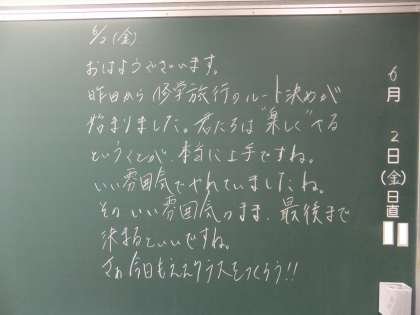 6/2(金)
おはようございます。
昨日から修学旅行のルート決めが
始まりました。君たちは"楽しく"やる
ということが、本当に上手ですね。
いい雰囲気でやれていましたね。
そのいい雰囲気のまま、最後まで
決まるといいですね。
さぁ今日もええクラスをつくろう!!
6月2日(金)日直